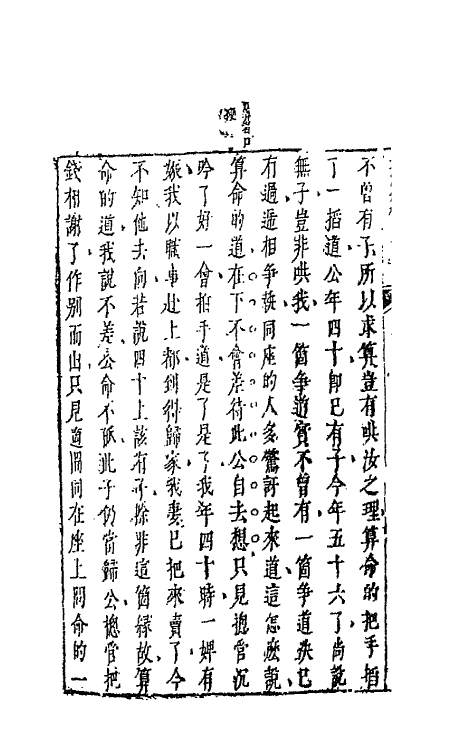 不曾有子所以求算豈有哄汝之理算命的把手掐
了一掐道公年四十卽已有子今年五十六了尚說
無子豈非哄我一箇爭道實不曾有一箇爭道決已
有過遞相爭執同座的人多驚訝起來道這怎麽說
算命的道在下不會差待此公自去想只見摠管沉
吟了好一會拍手道是了是了我年四十時一婢有
娠我以職事赴上都到得歸家我妻已把來賣了今
不知他去向若說四十上該有子除非這箇緣故算
命的道我說不差公命不孤此子仍當歸公摠管把
錢相謝了作別而出只見適間同在座上問命的一